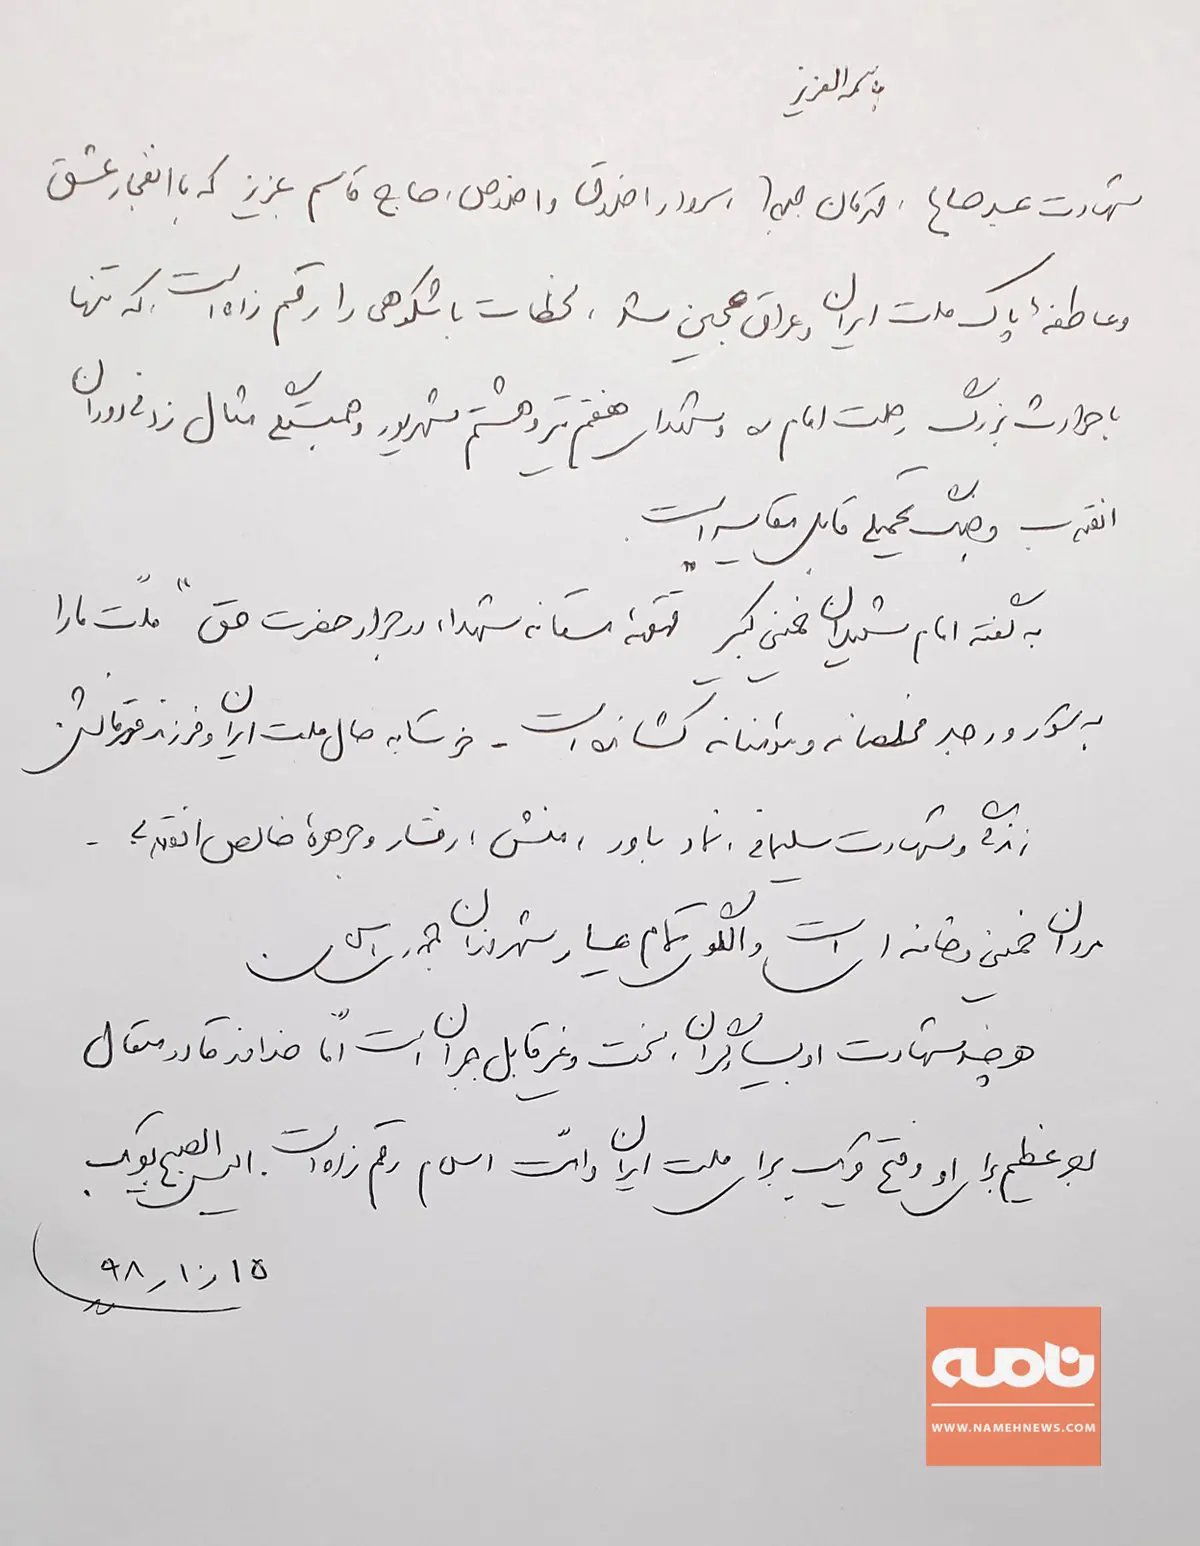 باسمه العزیز
شهادت عبد صالح، قهرمان جهاد، اسوار اخلاق و اخلاص، حاج قاسم عزیز که با انفجار عشق
و عاطفهٔ پاک ملت ایران و عراق عجین شد، لحظات باشکوهی را رقم زده است، که تنها
با حوادث بزرگ رحلت امام ره و شهدای هفتم تیر و هشتم شهریور و همبستگی مثال زدنی دوران
انقلاب و جنگ تحمیلی قابل مقایسه است.
به گفته امام شهیدان خمینی کبیر "قهقههٔ مستانه شهداء در جوار حضرت حق" ملّت ما را
به شور و وجد مخلصانه و مؤمنانه کشانده است - خوشا به حال ملت ایران و فرزند قهرمانش
زندگی و شهادت سلیمانی، نماد باور، منش، رفتار و جوهرهٔ خالص انقلابی -
مردان خمینی و خامنه ای است و الگوی تمام عیار شهروندان جمهوری اسلامی
هر چند شهادت او بسیار گران، سخت و غیر قابل جبران است امّا خداوند قادر متعال
اجر عظیم برای او و فتح قریب برای ملت ایران و امّت اسلام رقم زده است. الیس الصبح بقریب
۱۵ ر ۱۰ ر ۹۸
نامه
WWW.NAMEHNEWS.COM